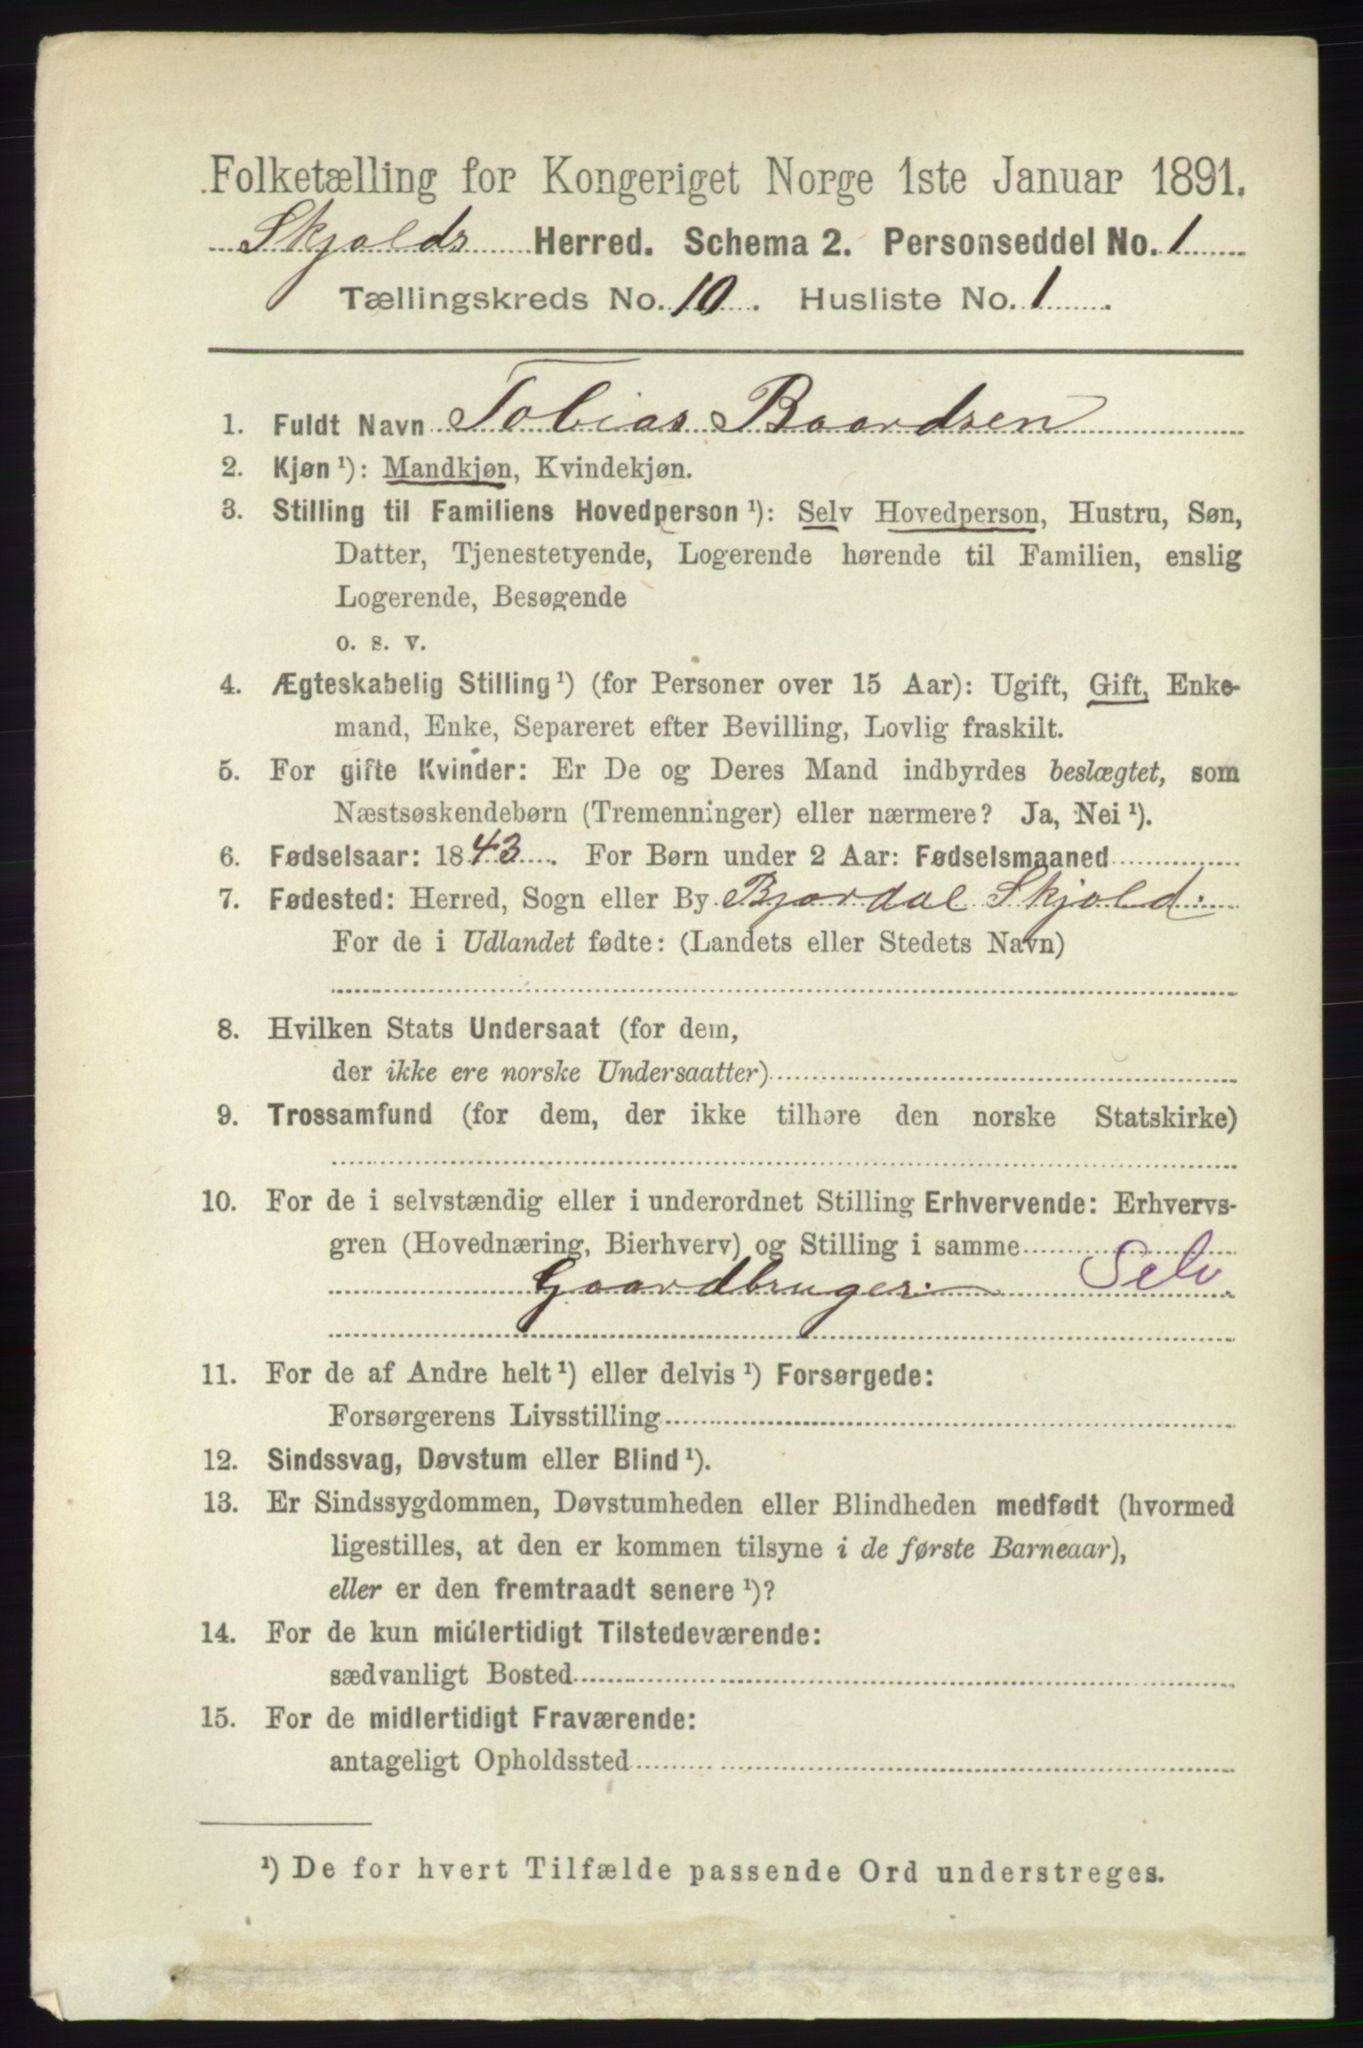 Folketælling for Kongeriget Norge 1ste Januar 1891.
Skjolds Herred. Schema 2. Personseddel No. 1
Tællingskreds No. 10. Husliste No. 1.
1. Fuldt Navn Tobias Baardsen
2. Kjøn ¹): Mandkjøn, Kvindekjøn.
3. Stilling til Familiens Hovedperson ¹): Selv Hovedperson, Hustru, Søn,
Datter, Tjenestetyende, Logerende hørende til Familien, enslig
Logerende, Besøgende
o. s. v.
4. Ægteskabelig Stilling ¹) (for Personer over 15 Aar): Ugift, Gift, Enke-
mand, Enke, Separeret efter Bevilling, Lovlig fraskilt.
5. For gifte Kvinder: Er De og Deres Mand indbyrdes beslægtet, som
Næstsøskendebørn (Tremenninger) eller nærmere? Ja, Nei ¹).
6. Fødselsaar: 1843. For Børn under 2 Aar: Fødselsmaaned
7. Fødested: Herred, Sogn eller By Bjordal Skjold.
For de i Udlandet fødte: (Landets eller Stedets Navn)
8. Hvilken Stats Undersaat (for dem,
der ikke ere norske Undersaatter)
9. Trossamfund (for dem, der ikke tilhøre den norske Statskirke)
10. For de i selvstændig eller i underordnet Stilling Erhvervende: Erhvervs-
gren (Hovednæring, Bierhverv) og Stilling i samme
Gaardbruger. Selv.
11. For de af Andre helt ¹) eller delvis ¹) Forsørgede:
Forsørgerens Livsstilling
12. Sindssvag, Døvstum eller Blind ¹).
13. Er Sindssygdommen, Døvstumheden eller Blindheden medfødt (hvormed
ligestilles, at den er kommen tilsyne i de første Barneaar),
eller er den fremtraadt senere ¹)?
14. For de kun midlertidigt Tilstedeværende:
sædvanligt Bosted
15. For de midlertidigt Fraværende:
antageligt Opholdssted
¹) De for hvert Tilfælde passende Ord understreges.